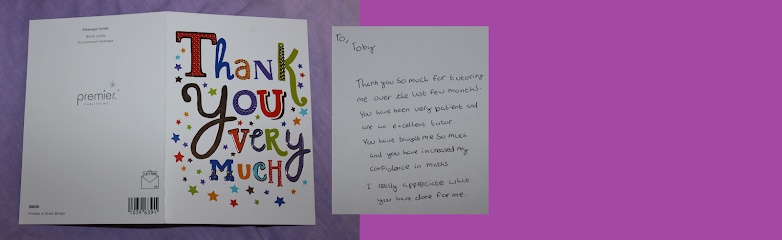 Message inside
premier.
Printed in Great Britain
Thank
You
very
Much
To,
Toby
Thank you so much for tutoring
me over the last few months.
You have been very patient and
are an excellent tutor.
You have taught me so much
and you have increased my
confidence in maths.
I really appreciate what
you have done for me.